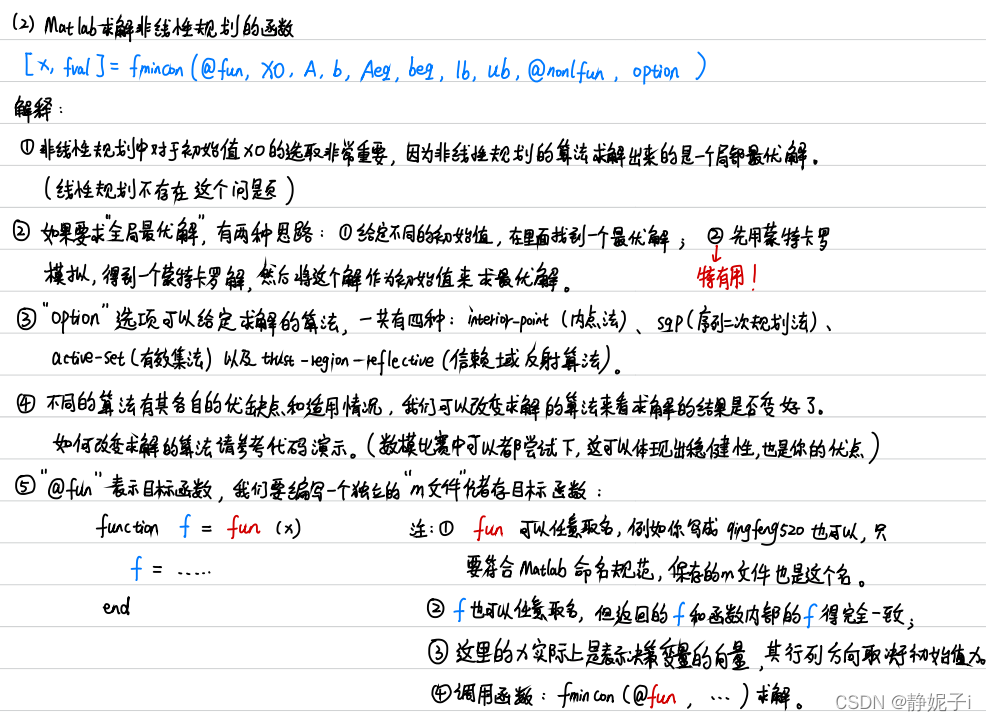 (2) Matlab求解非线性规划的函数
[x, fval] = fmincon (@fun, X0, A, b, Aeq, beq, lb, ub, @nonlfun, option )
解释:
① 非线性规划中对于初始值x0的选取非常重要, 因为非线性规划的算法求解出来的是一个局部最优解。
(线性规划不存在这个问题)
② 如果要求"全局最优解", 有两种思路: ①给定不同的初始值, 在里面找到一个最优解; ② 先用蒙特卡罗
模拟, 得到一个蒙特卡罗解, 然后将这个解作为初始值来求最优解。
特有用!
③ "option"选项可以给定求解的算法, 一共有四种: interior-point (内点法)、sqp (序列二次规划法)、
active-set (有效集法) 以及 trust-region-reflective (信赖域反射算法)。
④ 不同的算法有其各自的优缺点和适用情况, 我们可以改变求解的算法来看求解的结果是否变好了。
如何改变求解的算法请参考代码演示。(数模比赛中可以都尝试下, 这可以体现出稳健性, 也是你的优点)
⑤ "@fun"表示目标函数, 我们要编写一个独立的"m文件"储存目标函数:
function f = fun (x)
f = ......
end
注: ① fun 可以任意取名, 例如你写成 qingfeng520 也可以, 只
要符合Matlab命名规范, 保存的m文件也是这个名。
② f也可以任意取名, 但返回的f和函数内部的f得完全一致;
③ 这里的x实际上是表示决策变量的向量, 其行列方向取决于初始值x0。
④ 调用函数: fmincon (@fun, ...) 求解。
CSDN @静妮子i